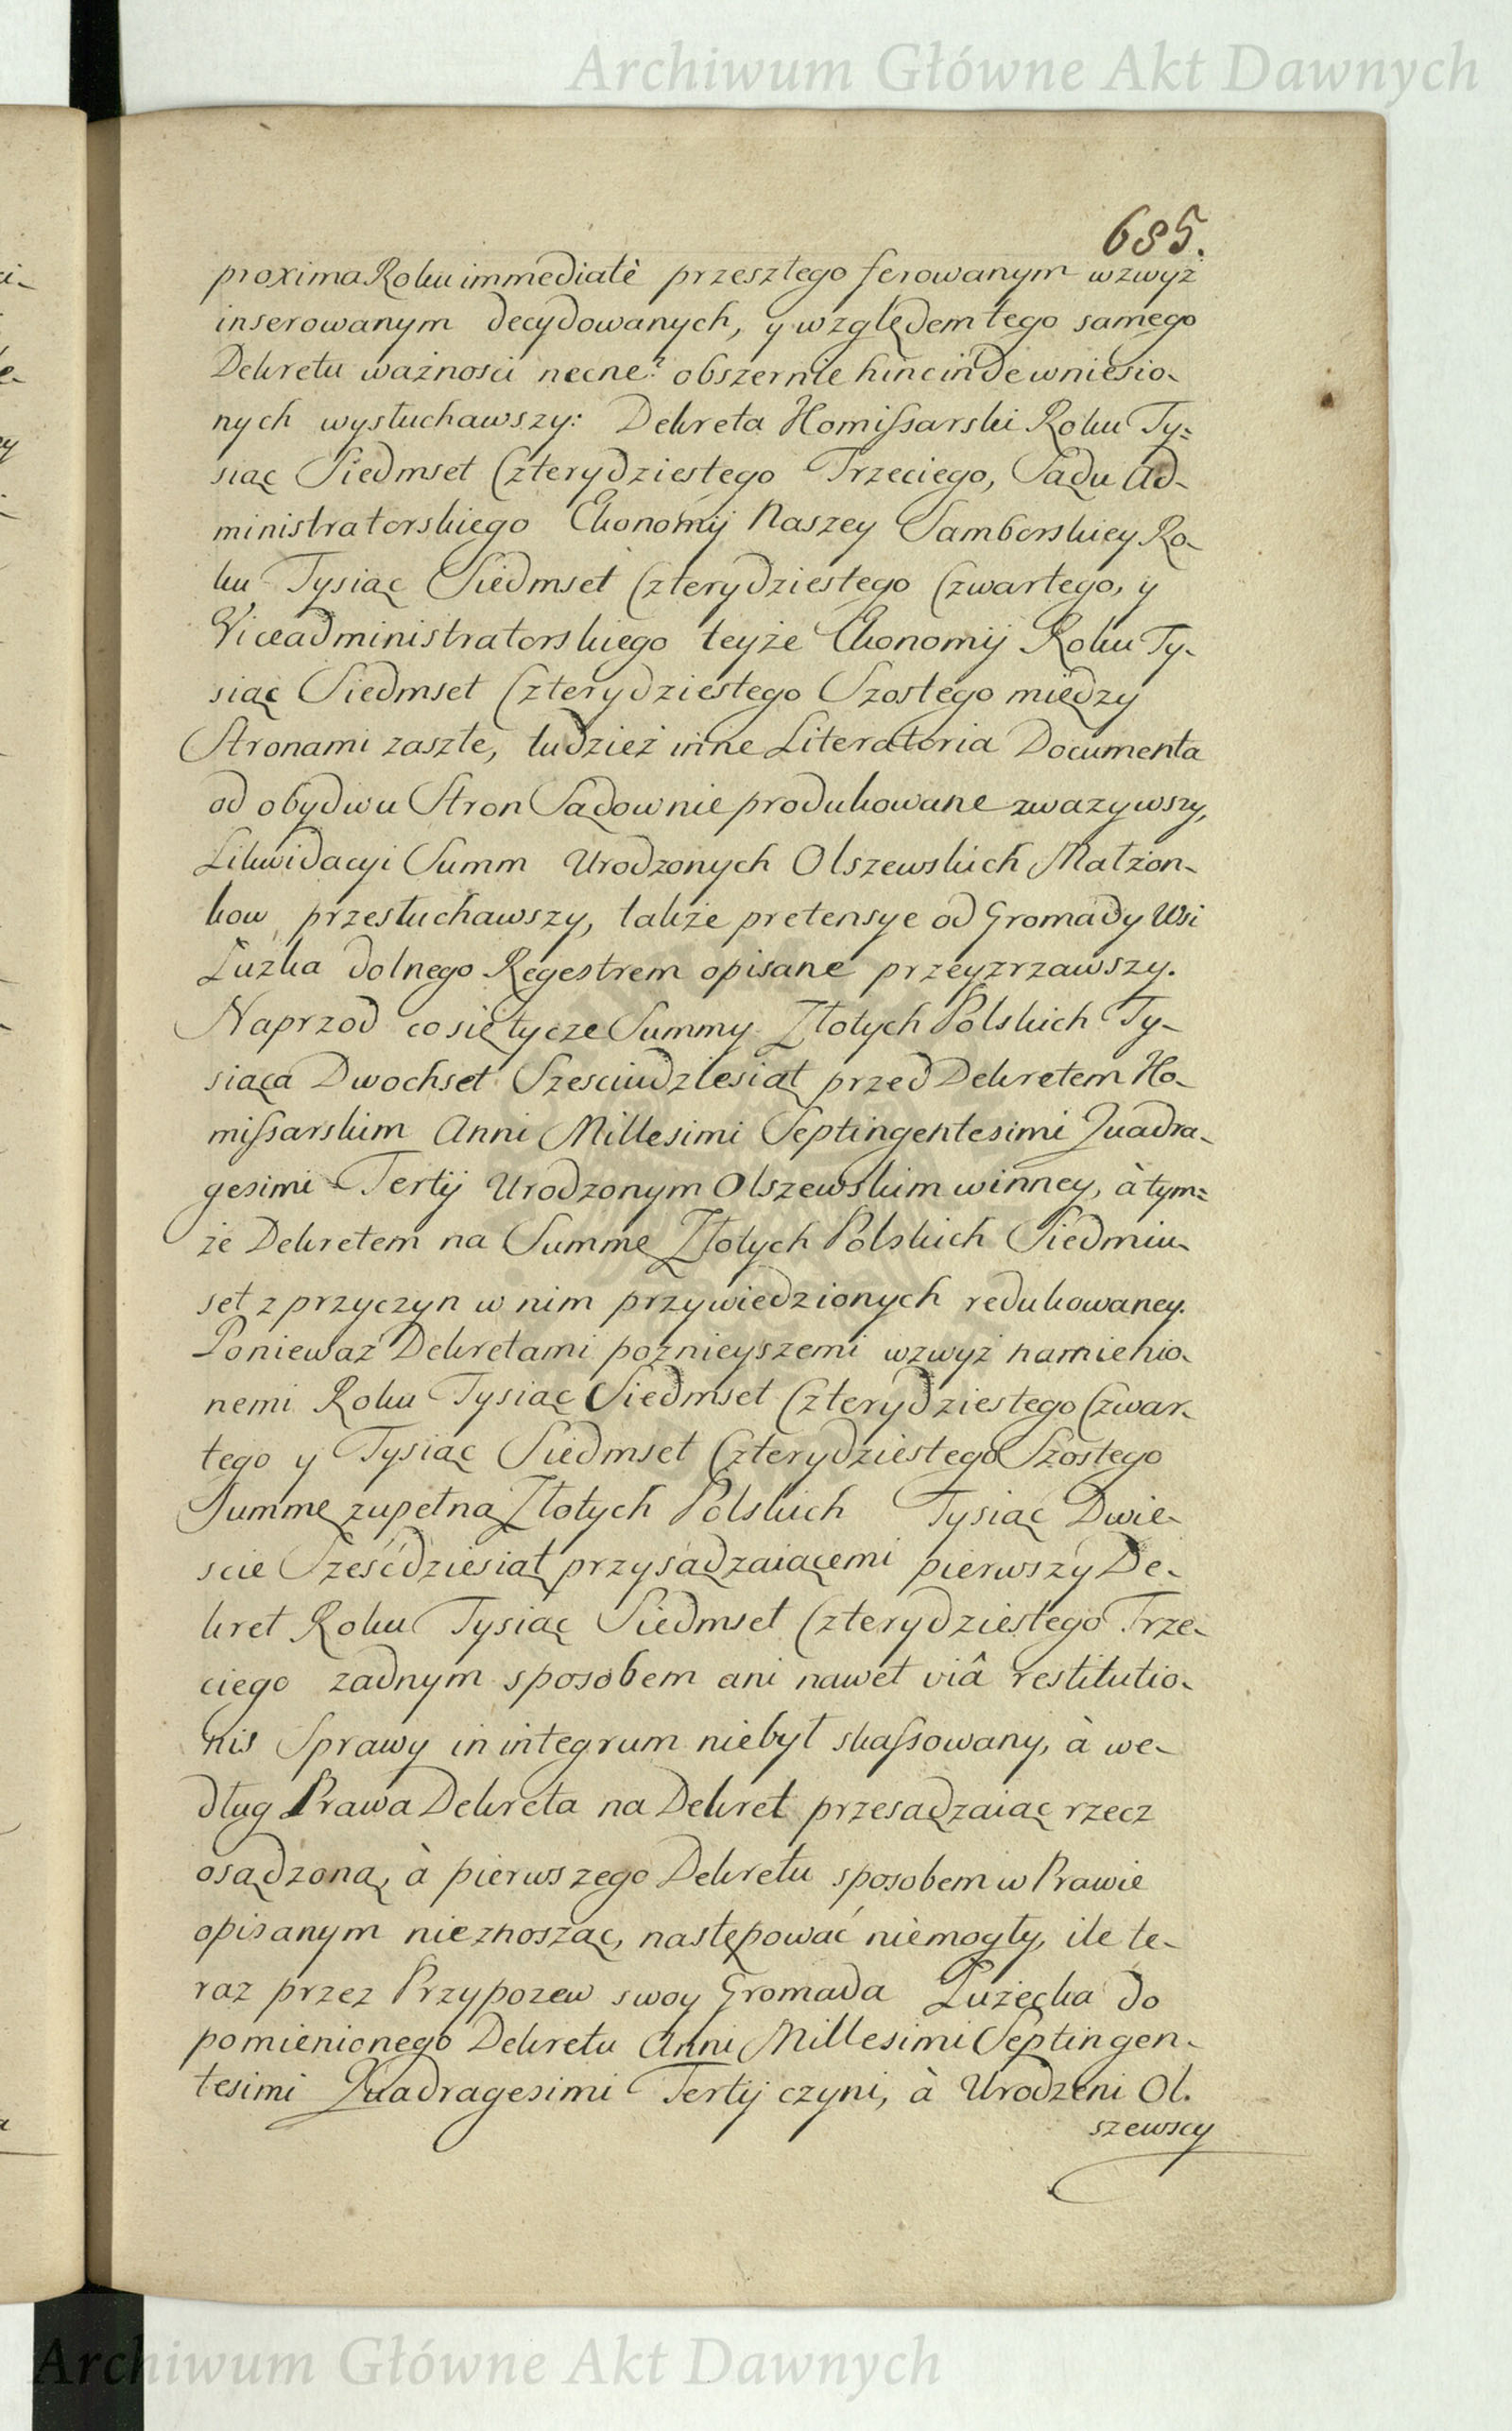 Archiwum Główne Akt Dawnych
685.
proxima Roku immediatè przeszłego ferowanym wzwyż
inserowanym decydowanych, y względem tego samego
Dekretu ważnosci necne? obszernie hincinde wniesio-
nych wysłuchawszy: Dekreta Komissarski Roku Ty=
siąc Siedmset Czterydziestego Trzeciego, Sądu Ad-
ministratorskiego Ekonomij Naszey Samborskiey Ro-
ku Tysiąc Siedmset Czterydziestego Czwartego, y
Viceadministratorskiego teyże Ekonomij Roku Ty-
siąc Siedmset Czterydziestego Szostego między
Stronami zaszłe, tudzież inne Literatoria Documenta
od obydwu Stron Sądownie produkowane zwazywszy,
Likwidacyi Summ Urodzonych Olszewskich Małżon-
kow przesłuchawszy, także pretensye od Gromady Wsi
Łużka dolnego Regestrem opisane przeyzrzawszy.
Naprzod co się tycze Summy Złotych Polskich Ty-
siąca Dwochset Szesciudziesiąt przed Dekretem Ko-
missarskim Anni Millesimi Septingentesimi Quadra-
gesimi Tertij Urodzonym Olszewskim winney, à tym=
że Dekretem na Summę Złotych Polskich Siedmiu-
set z przyczyn w nim przywiedzionych redukowaney.
Ponieważ Dekretami poznieyszemi wzwyż namienio-
nemi Roku Tysiąc Siedmset Czterydziestego Czwar-
tego y Tysiąc Siedmset Czterydziestego Szostego
Summę zupełną Złotych Polskich Tysiąc Dwie-
scie Sześćdziesiąt przysądzaiącemi pierwszy De-
kret Roku Tysiąc Siedmset Czterydziestego Trze-
ciego żadnym sposobem ani nawet viâ restitutio-
nis Sprawy in integrum niebył skassowany, à we-
dług Prawa Dekreta na Dekret przesądzaiąc rzecz
osądzoną, à pierwszego Dekretu sposobem w Prawie
opisanym nieznosząc, następować niemogły, ile te-
raz przez Przypozew swoy Gromada Łużecka do
pomienionego Dekretu Anni Millesimi Septingen-
tesimi Quadragesimi Tertij czyni, à Urodzeni Ol-
szewscy
Archiwum Główne Akt Dawnych